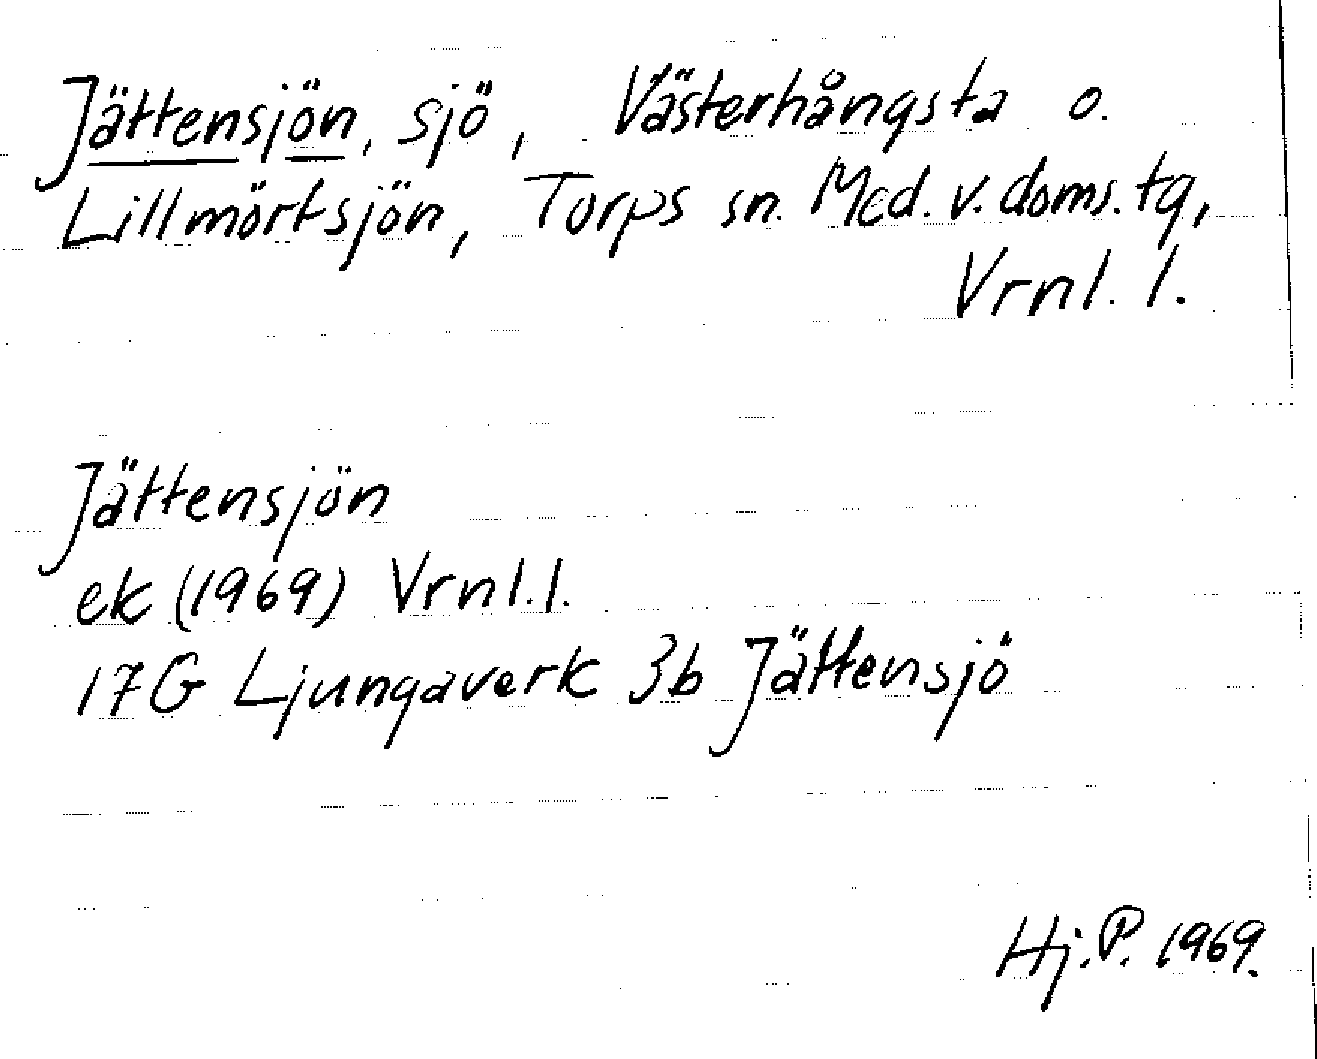 Jättensjön, sjö, Västerhångsta o.
Lillmörtsjön, Torps sn. Med. v. doms. tg,
Vrnl. l.
Jättensjön
ek (1969) Vrnl. l.
17G Ljungaverk 3b Jättensjö
Hj. P. 1969.